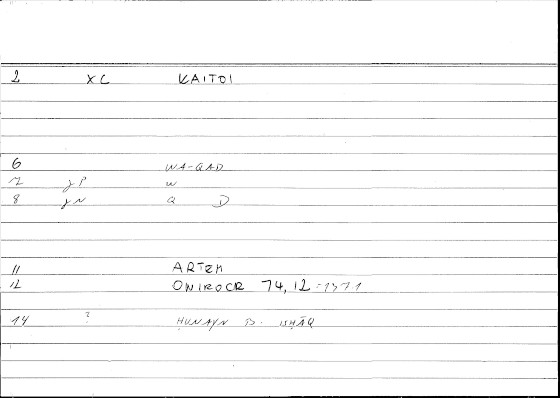 2 XC KAITOI
6 WA-QAD
7 JP W
8 JN Q D
11 ARTEM
12 ONIROCR 74,12 = 137,1
14 ? ḤUNAYN B. ISḤĀQ